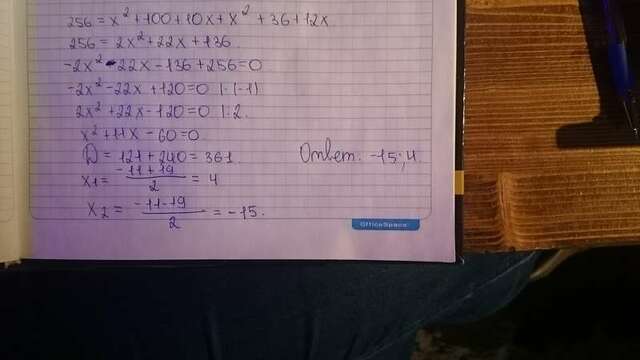 256 = x² + 100 + 10x + x² + 36 + 12x
256 = 2x² + 22x + 136
-2x² - 22x - 136 + 256 = 0
-2x² - 22x + 120 = 0 | · (-1)
2x² + 22x - 120 = 0 | : 2
x² + 11x - 60 = 0
D = 121 + 240 = 361
x₁ = (-11 + 19) / 2 = 4
x₂ = (-11 - 19) / 2 = -15.
Ответ: -15; 4.
OfficeSpace